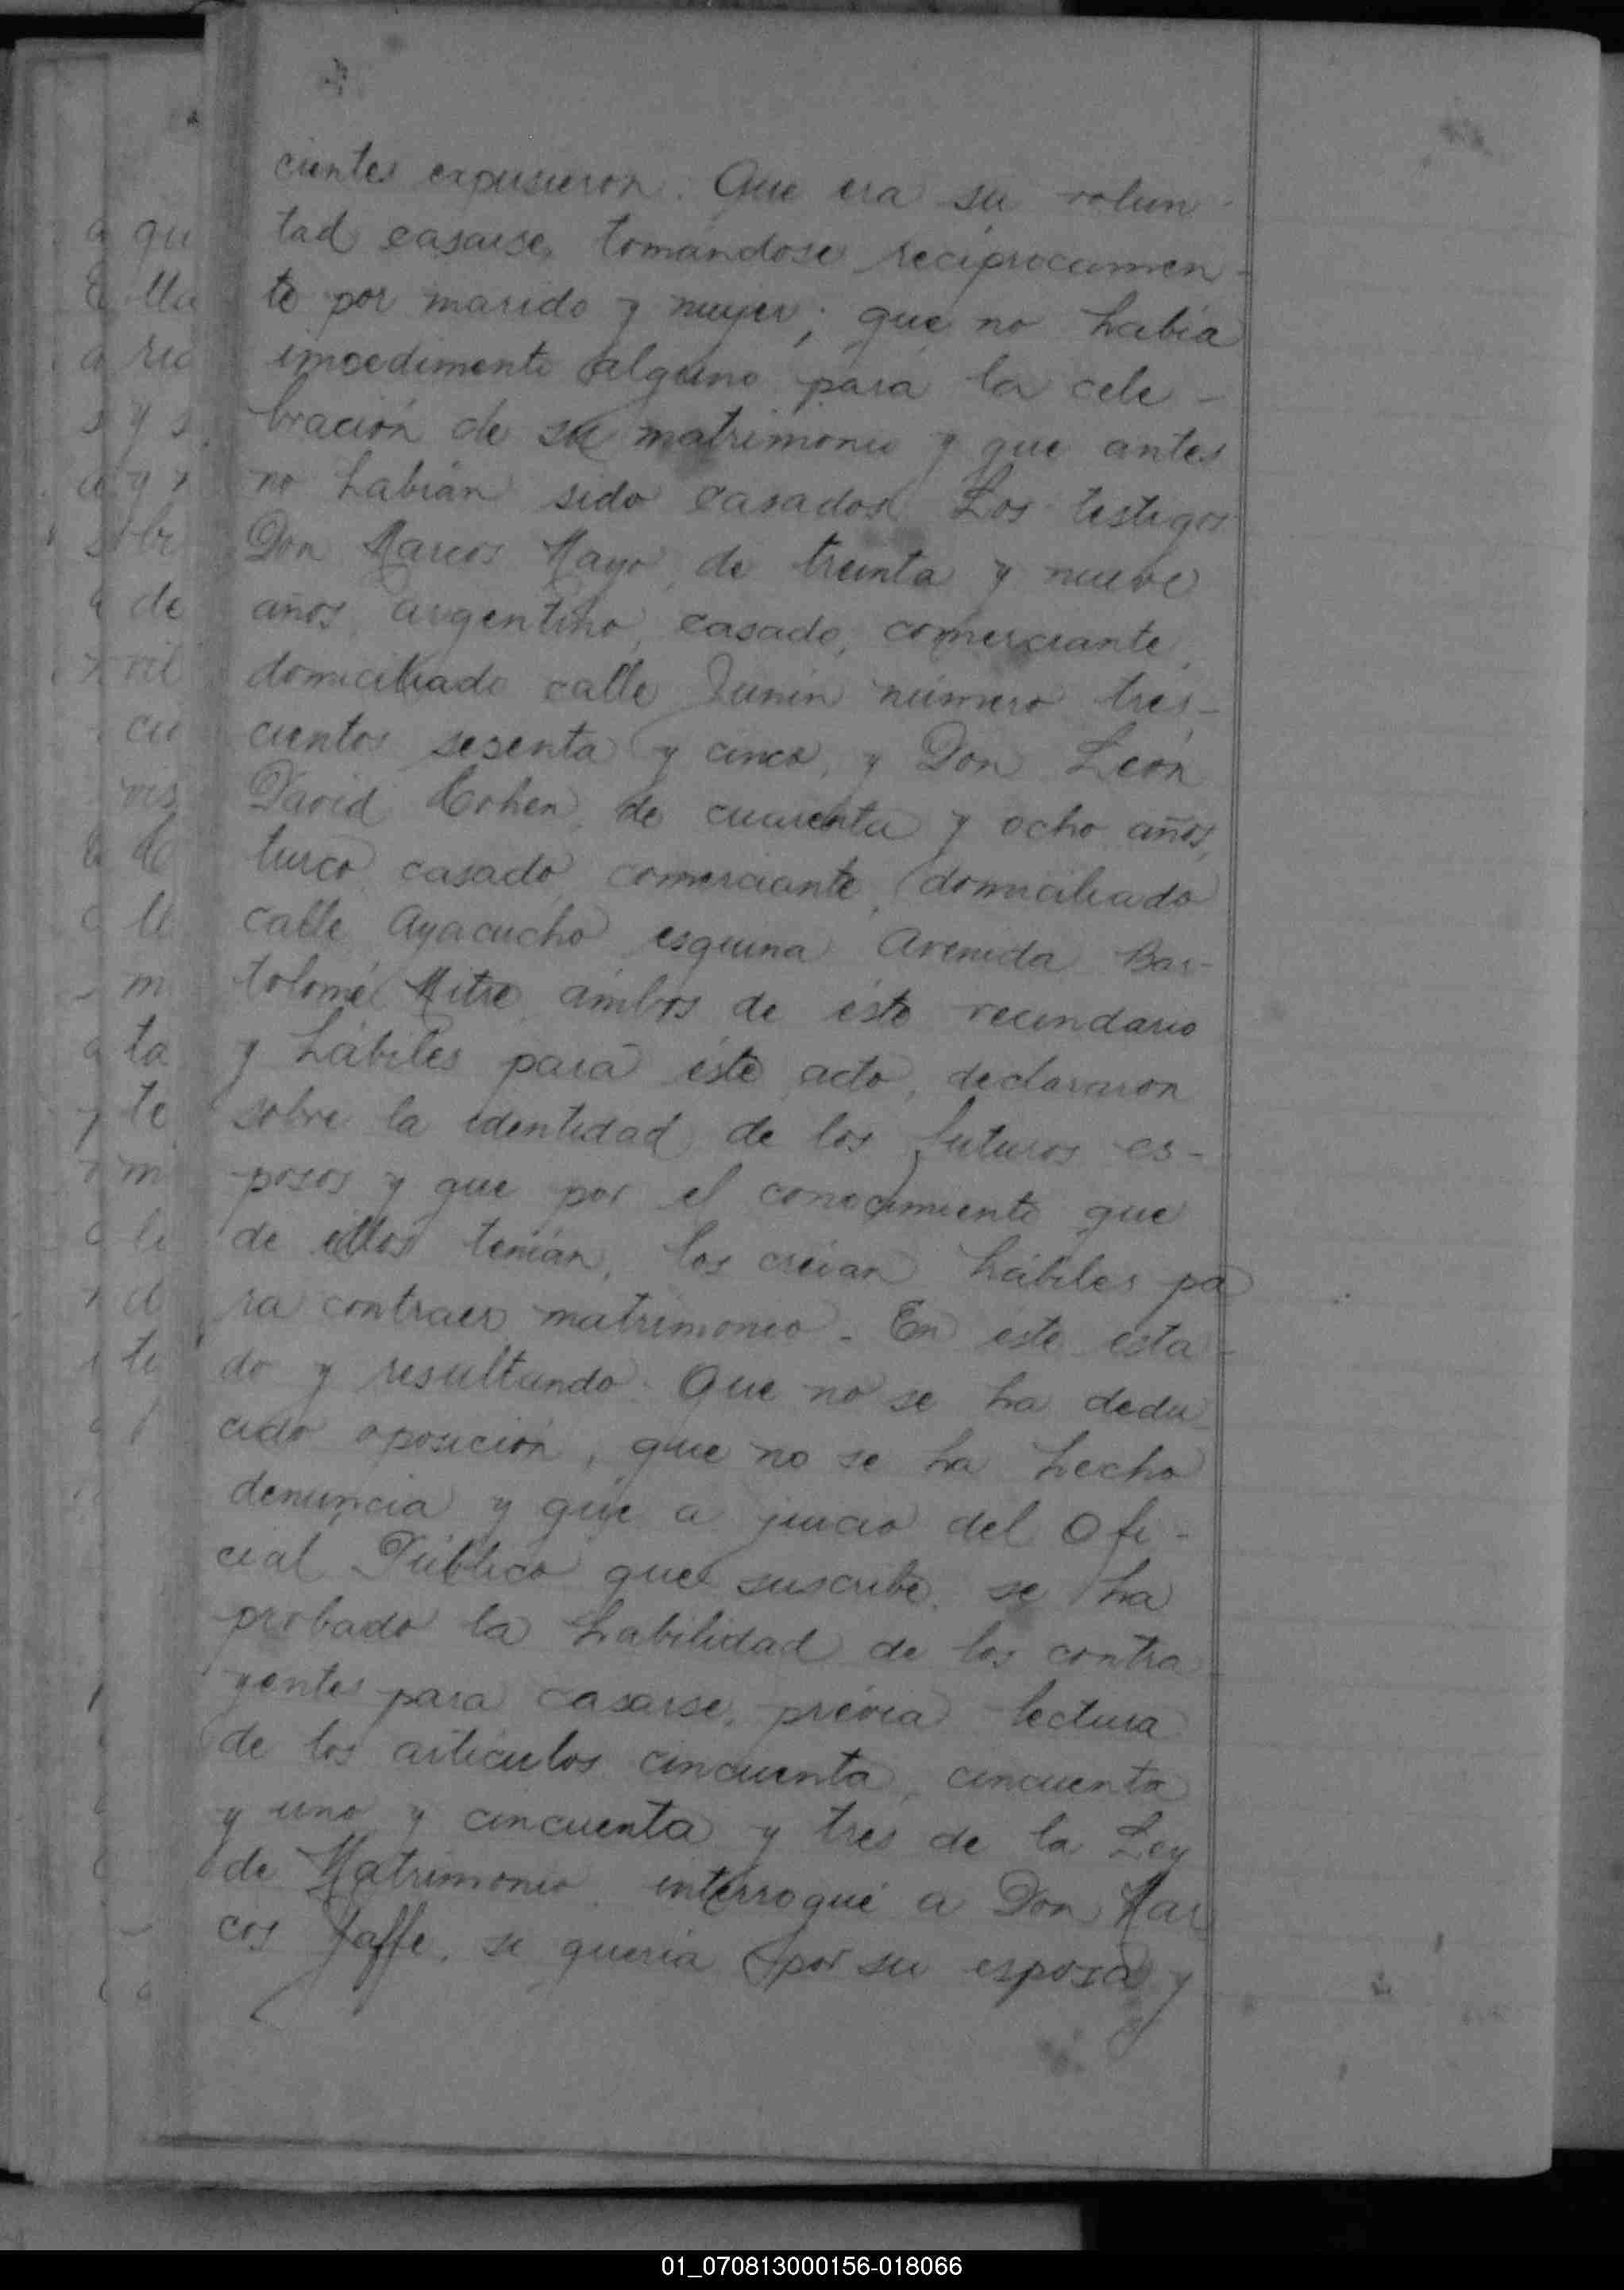 cientes expusieron: Que era su volun-
tad casarse, tomándose recíprocamen-
te por marido y mujer; que no había
impedimento alguno para la cele-
bración de su matrimonio y que antes
no habían sido casados. Los testigos
Don Marcos Mayo, de treinta y nueve
años, argentino, casado, comerciante,
domiciliado calle Junín número tres-
cientos sesenta y cinco, y Don León
David Cohen, de cuarenta y ocho años,
turco, casado, comerciante, domiciliado
calle Ayacucho esquina Avenida Bar-
tolomé Mitre, ámbos de éste vecindario
y hábiles para éste acto, declararon
sobre la identidad de los futuros es-
posos y que por el conocimiento que
de ellos tenían, los creían hábiles pa
ra contraer matrimonio. En este esta-
do y resultando: Que no se ha dedu-
cido oposición, que no se ha hecho
denuncia y que a juicio del Ofi-
cial Público que suscribe, se ha
probado la habilidad de los contra
yentes para casarse, prévia lectura
de los artículos cincuenta, cincuenta
y uno y cincuenta y tres de la Ley
de Matrimonio, interrogué a Don Mar
cos Jaffe, si quería por su esposa y
01_070813000156-018066